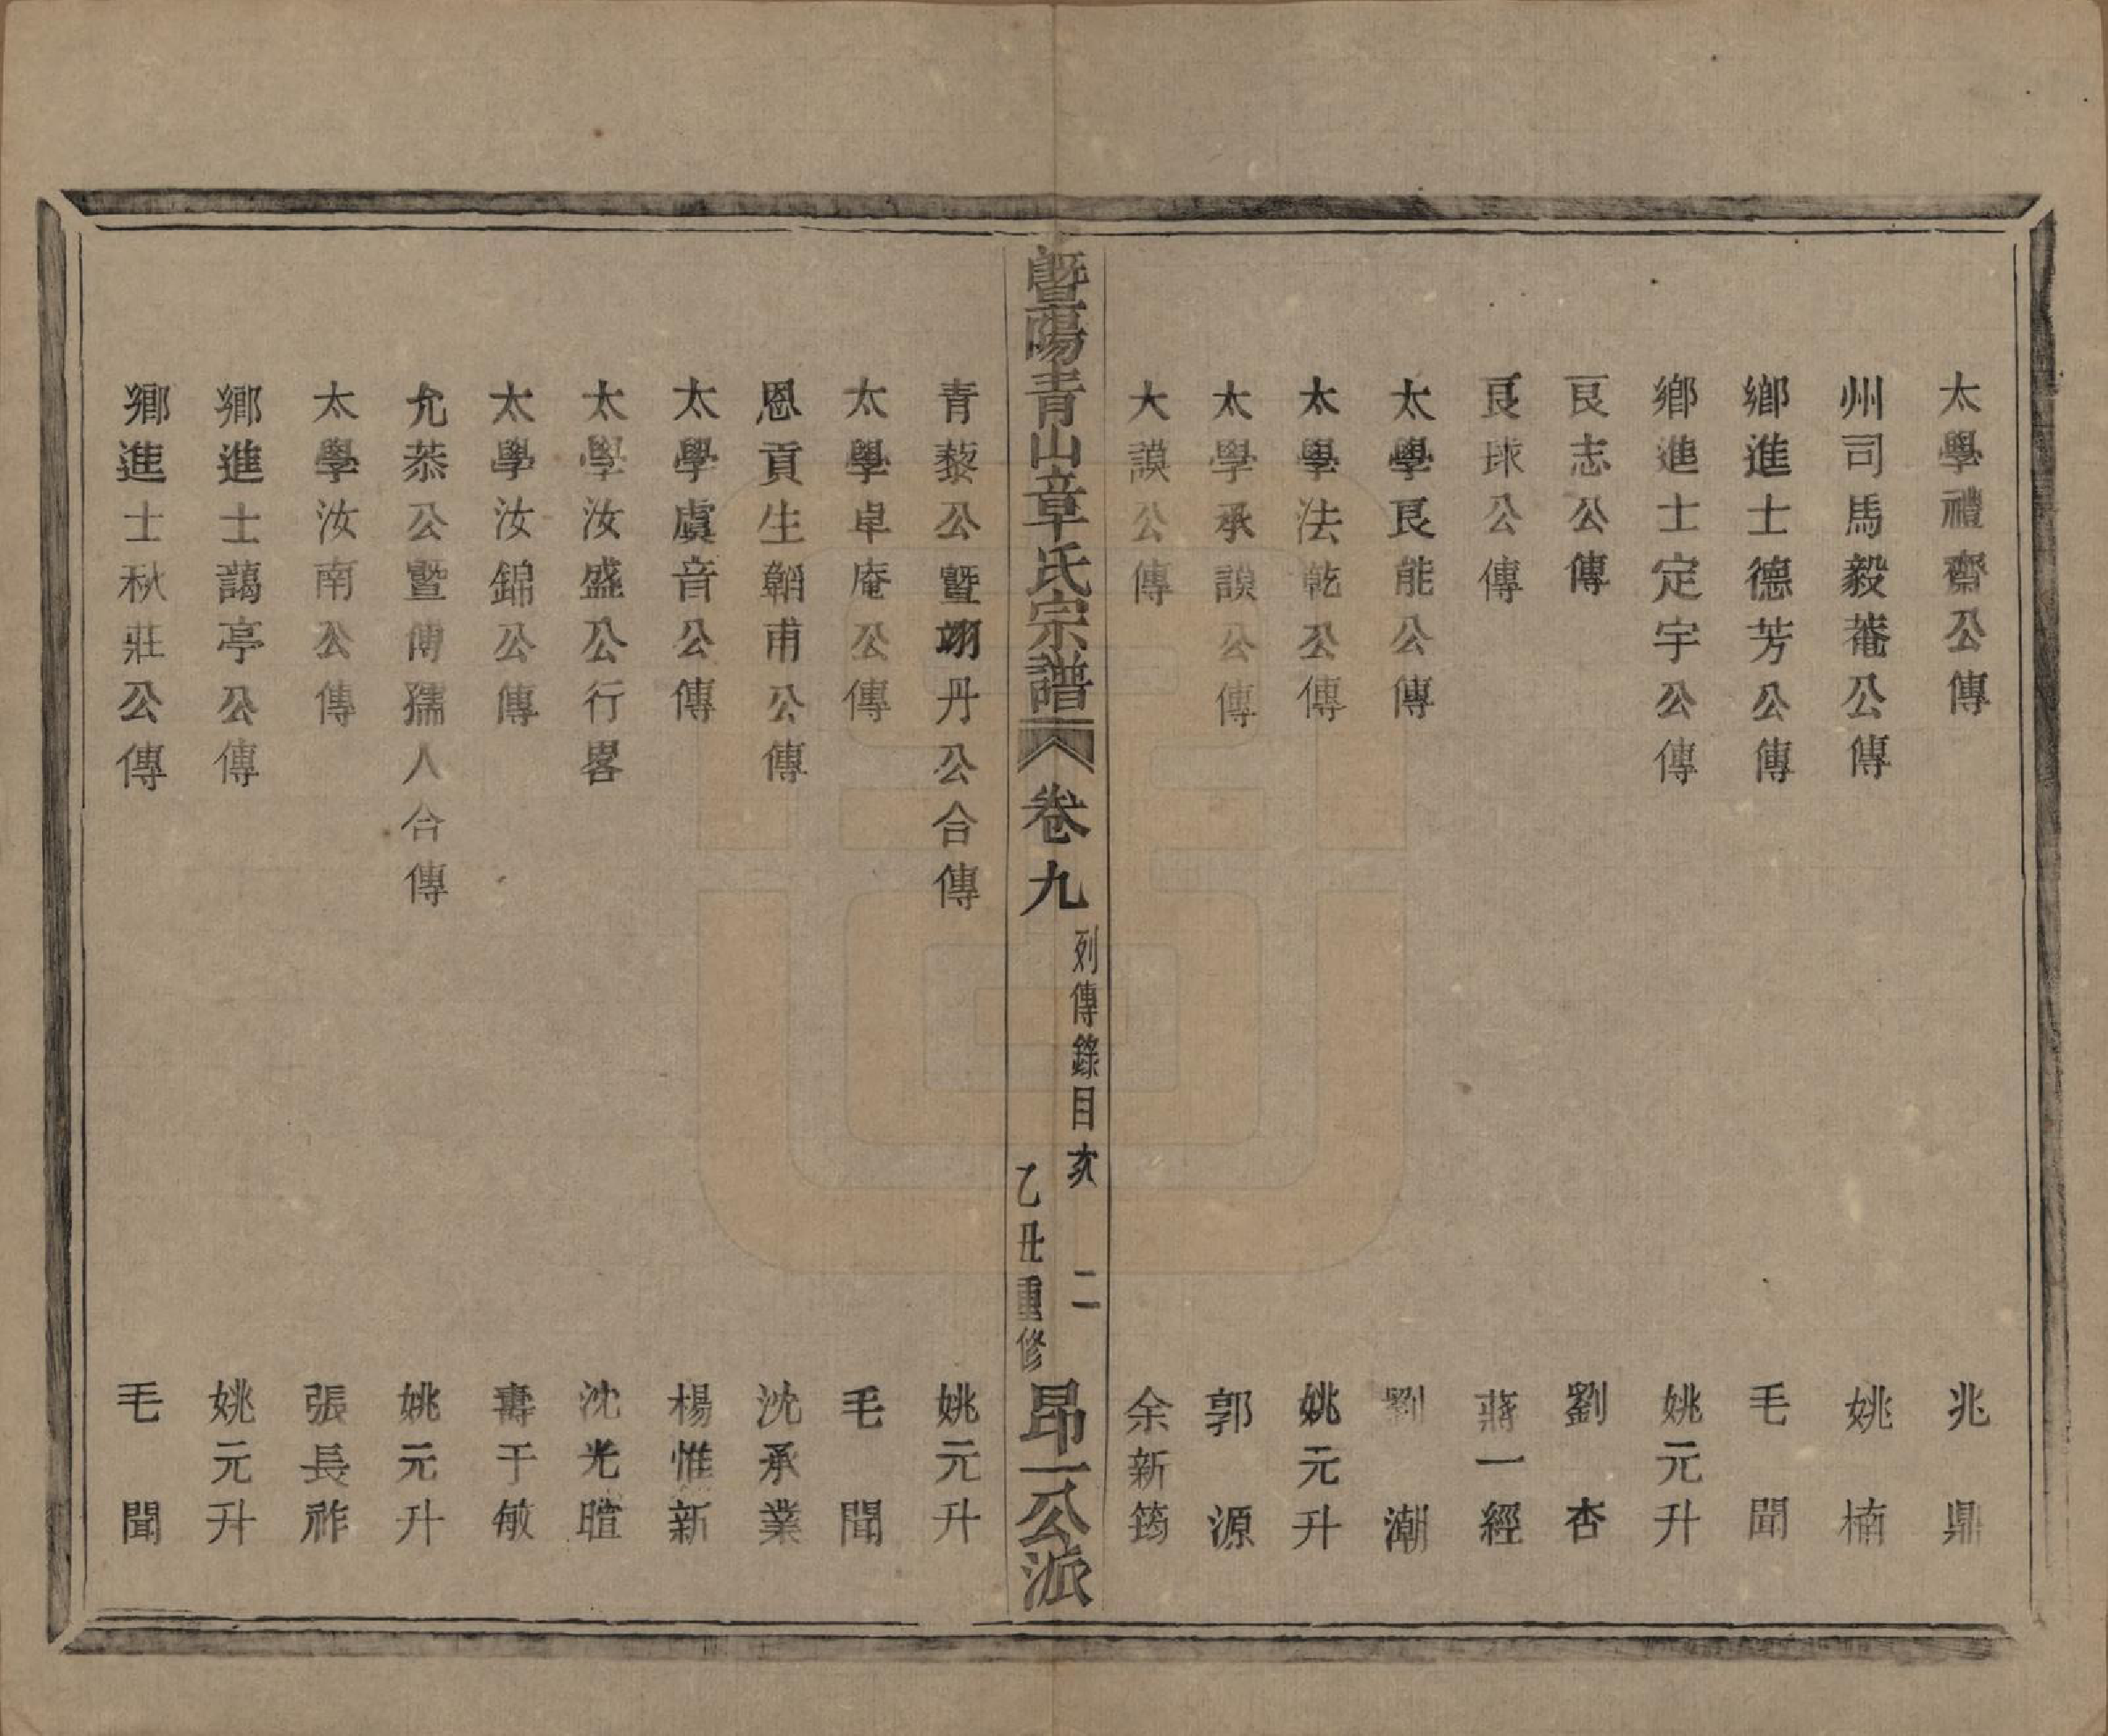 太學禮齋公傳 兆鼎
州司馬毅菴公傳 姚楠
鄉進士德芳公傳 毛聞
鄉進士定宇公傳 姚元升
艮志公傳 劉杏
艮球公傳 蔣一經
太學艮能公傳 劉潮
太學法乾公傳 姚元升
太學承謨公傳 郭源
大謨公傳 余新筠
暨陽青山章氏宗譜 卷九 列傳錄目次 二 乙丑重修 昂一公派
青藜公暨翊丹公合傳 姚元升
太學卓庵公傳 毛聞
恩貢生黼甫公傳 沈承業
太學虞音公傳 楊惟新
太學汝盛公行畧 沈光暄
太學汝錦公傳 壽于敏
允恭公暨傅孺人合傳 姚元升
太學汝南公傳 張長祚
鄉進士藹亭公傳 姚元升
鄉進士秋莊公傳 毛聞